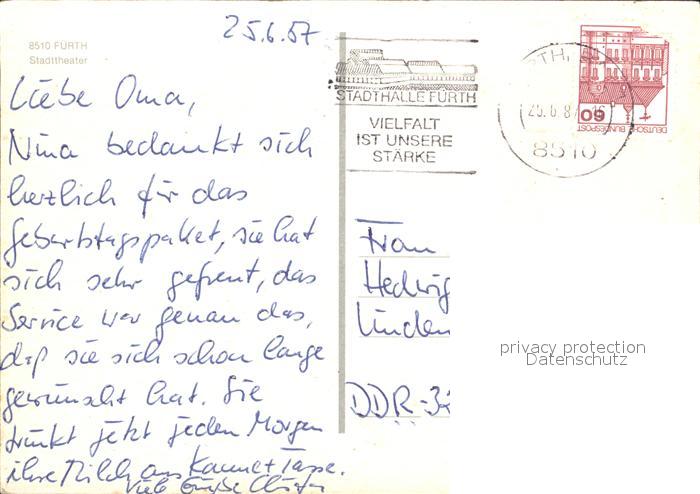 25.6.87
8510 FÜRTH
Stadttheater
Liebe Oma,
Nina bedankt sich
herzlich für das
Geburtstagspaket, sie hat
sich sehr gefreut, das
Service war genau das,
daß sie sich schon lange
gewünscht hat. Sie
trinkt jetzt jeden Morgen
ihre Milch aus Kanne + Tasse.
Viele Grüße
STADTHALLE FÜRTH
VIELFALT
IST UNSERE
STÄRKE
25.6.87
8510
60
DEUTSCHE BUNDESPOST
Frau
Hedwig
Linden
DDR-32
privacy protection
Datenschutz